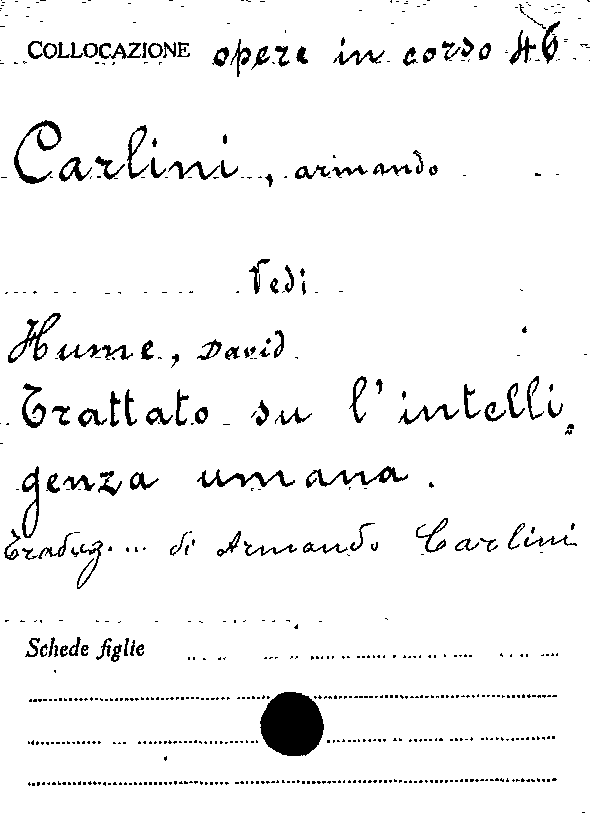 COLLOCAZIONE opere in corso 46
Carlini, armando
Vedi
Hume, David
Trattato su l'intelli=
genza umana.
Traduz.... di Armando Carlini
Schede figlie